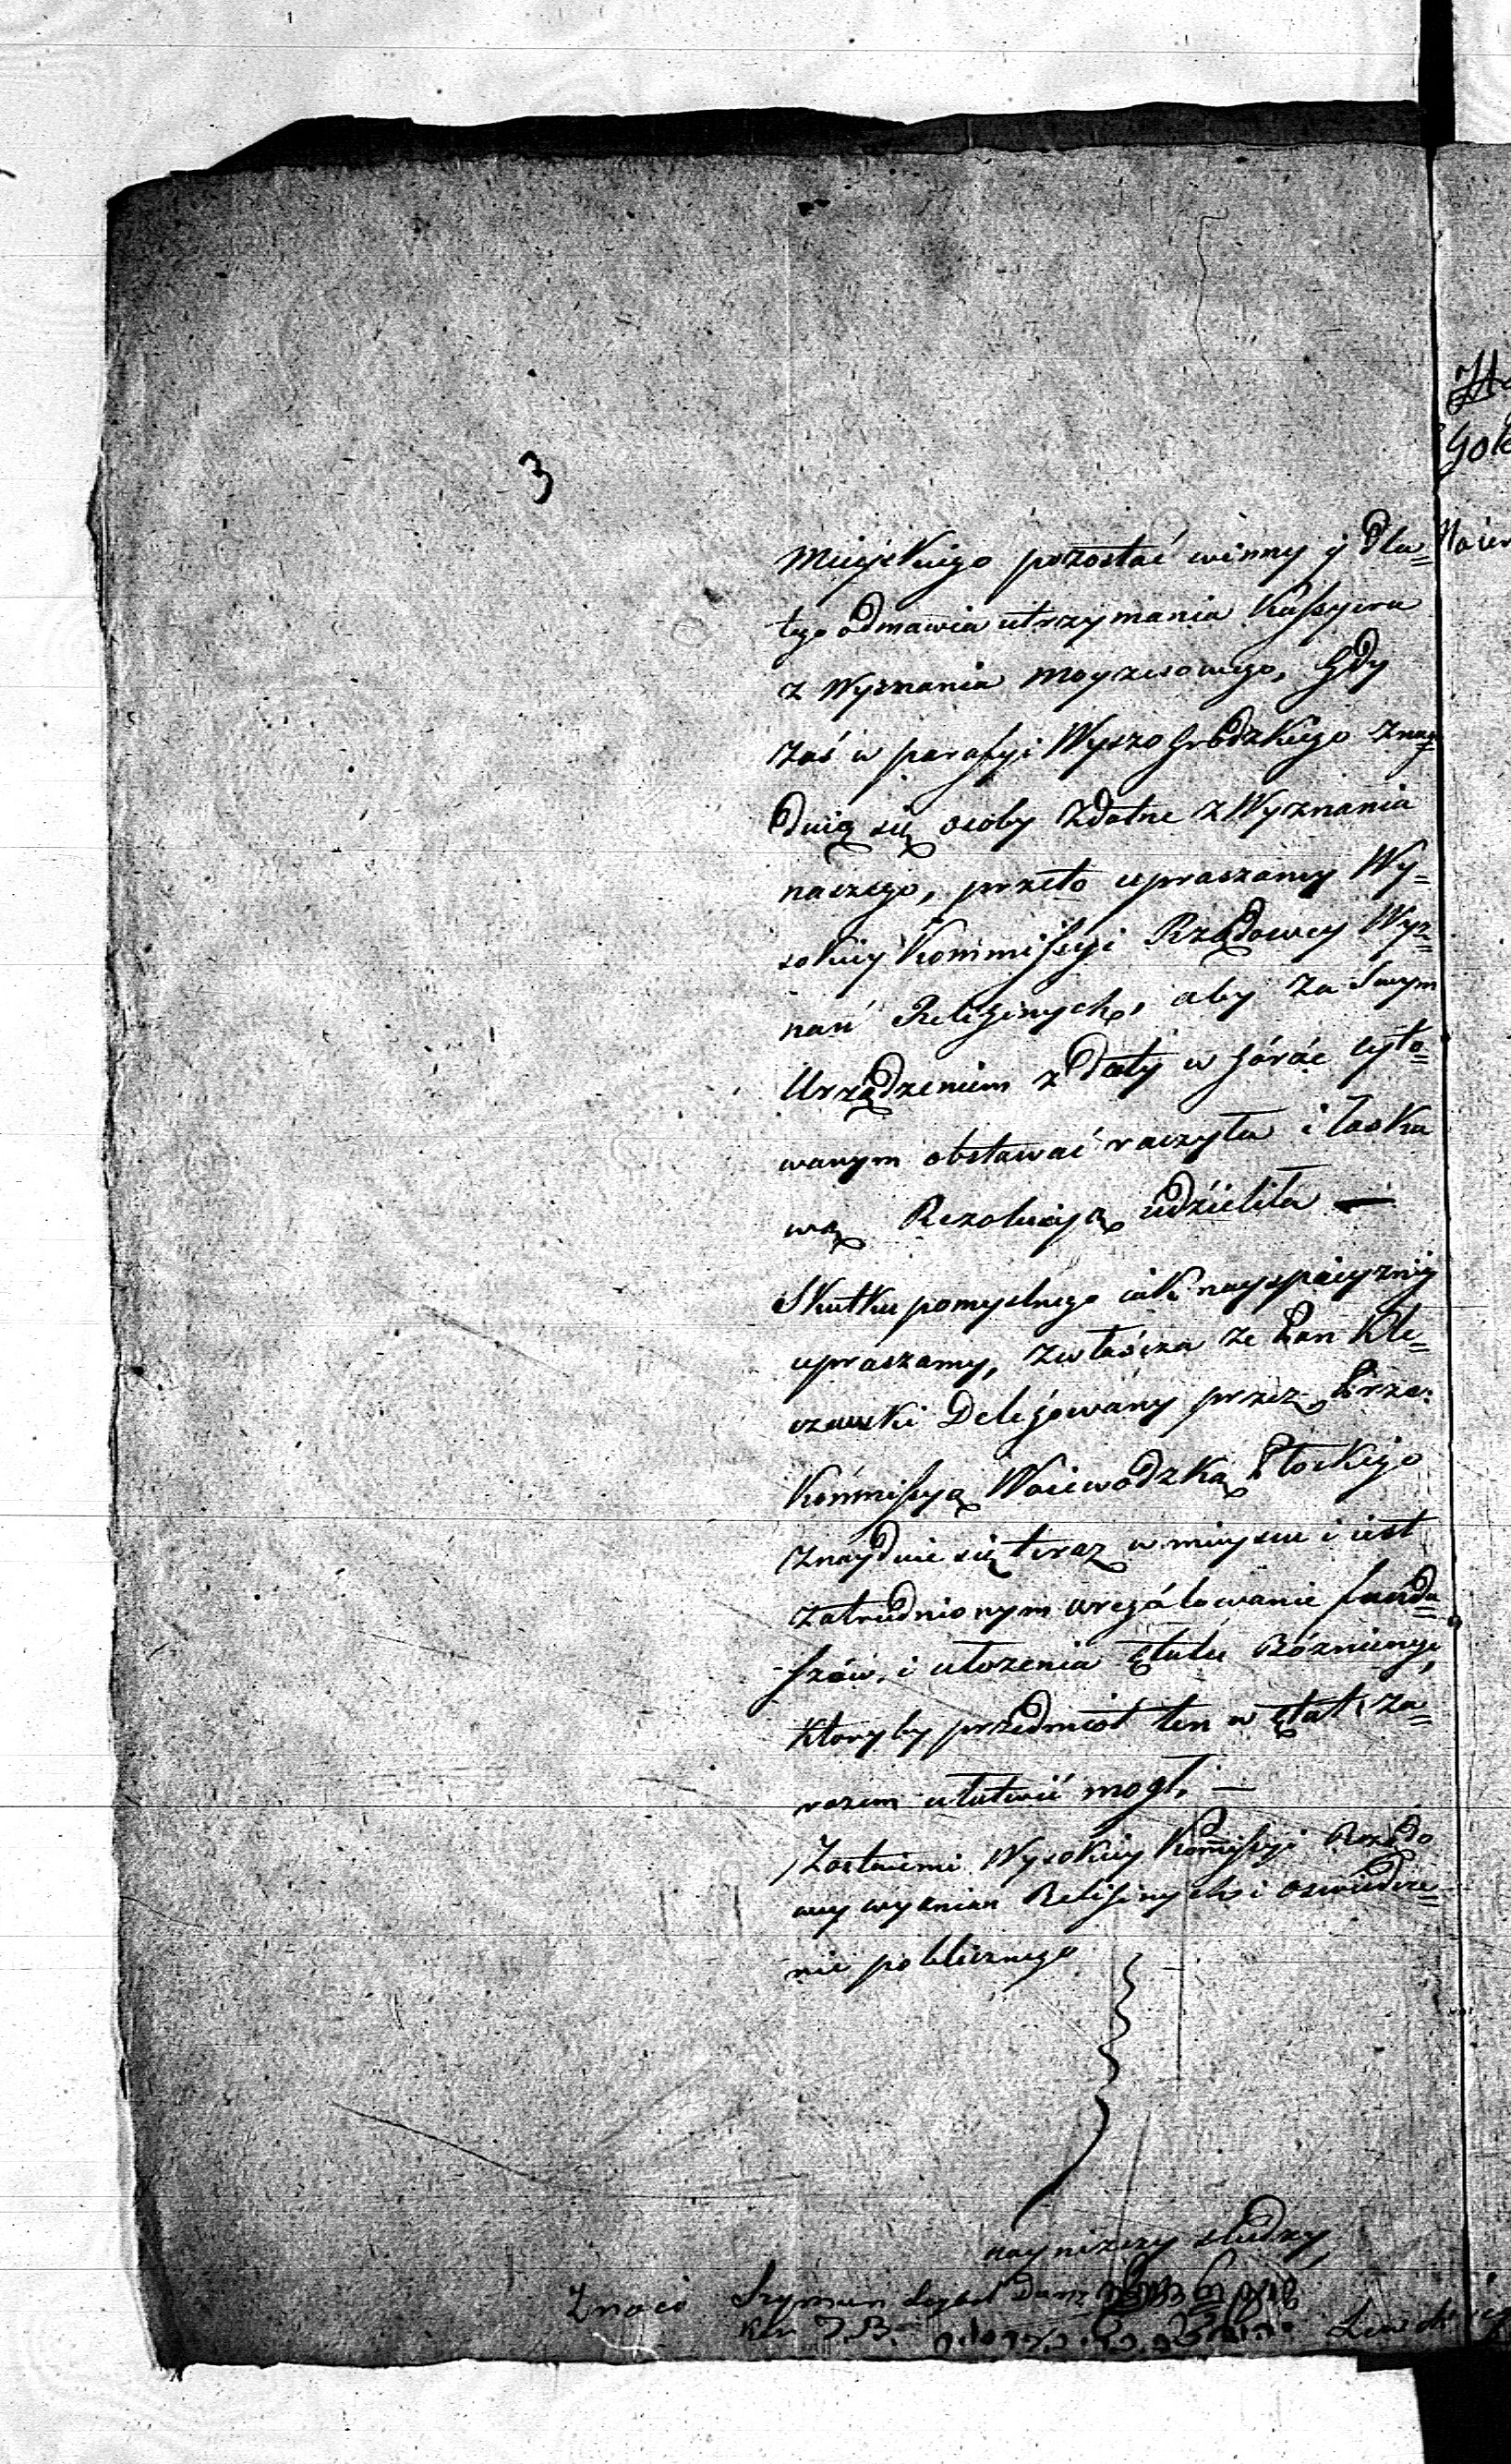 3
Mieyskiego pozostać winny y dla=
tego odmawia utrzymania Kassyera
z Wyznania moyzesowego, Gdy
zaś w parafyi Wyszogrodzkiego znay=
duią się osoby zdatne z Wyznania
naszego, przeto upraszamy Wy=
sokiey Kommissyi Rządowey Wyz=
nań Religinych, aby za swym
Urządzeniem z daty w górze cyto=
wanym obstawać raczyła i łaska
wą Rezolucyą udzieliła —
Skutku pomyslnego iak nayspieszniey
upraszamy, zwłaścza ze Pan Kle=
czewski Delegowany przez Prze:
Kommissyą Woiewodzką Płockiego
znayduie się teraz w mieyscu i iest
zatrudnionym uregulowanie fundu=
szów, i ułozenia Etatu Bóznicznego,
ktoryby przedmiot ten w Etat za=
razem ułatwić mogł, —
Zostaiemi Wysokiey Kommissyi Rządo
wey wyznian Religinych i oswiadcze=
nie publicznego
nayniższy słudzy
Szyman